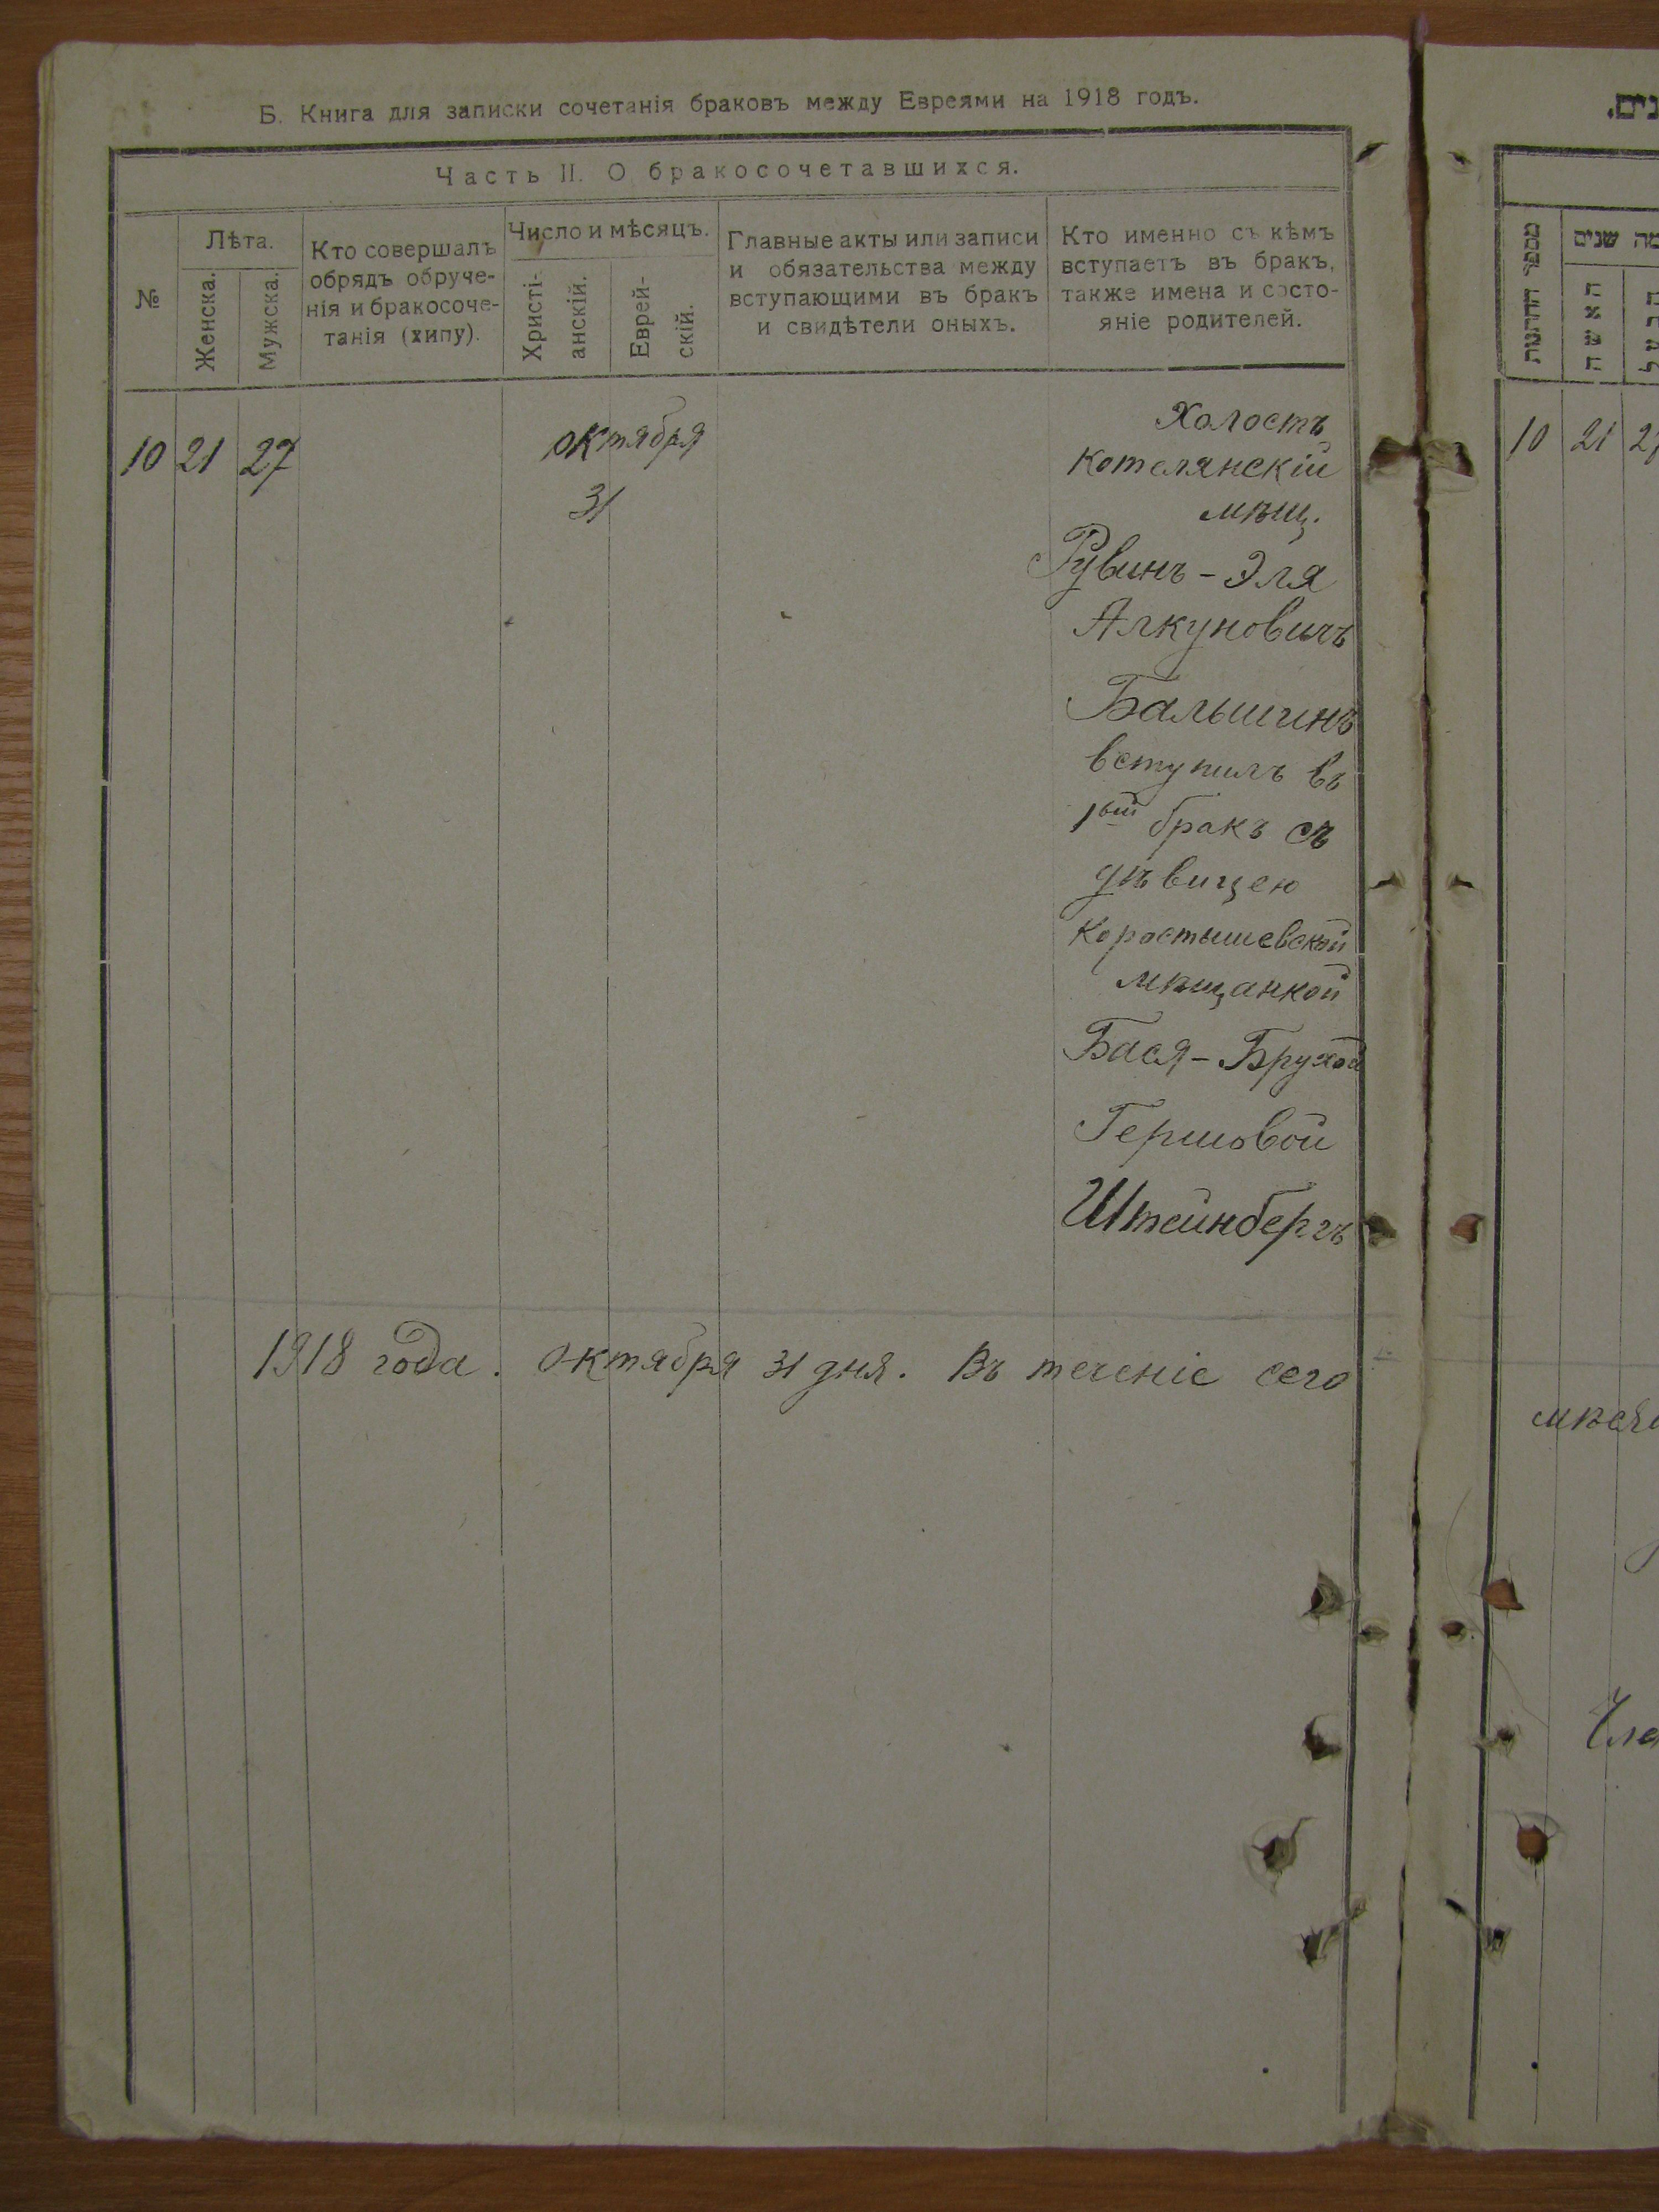 Б. Книга для записки сочетанія браковъ между Евреями на 1918 годъ.
Часть II. О бракосочетавшихся.
№
Лѣта.
Женска.
Мужска.
Кто совершалъ
обрядъ обруче-
нія и бракосоче-
танія (хипу).
Число и мѣсяцъ.
Христі-
анскій.
Еврей-
скій.
Главные акты или записи
и обязательства между
вступающими въ бракъ
и свидѣтели оныхъ.
Кто именно съ кѣмъ
вступаетъ въ бракъ,
также имена и состо-
яніе родителей.
10 21 27
октября
31
Холостъ
Котелянскій
мѣщ.
Рувинъ-Эля
Алкуновичъ
Балышинъ
вступилъ въ
1ый бракъ съ
дѣвицею
Коростышевской
мѣщанкой
Бася-Брухой
Гершовой
Штейнбергъ
1918 года. Октября 31 дня. Въ теченіе сего
מספר החתונות
מה שנים
האשה
10 21 27